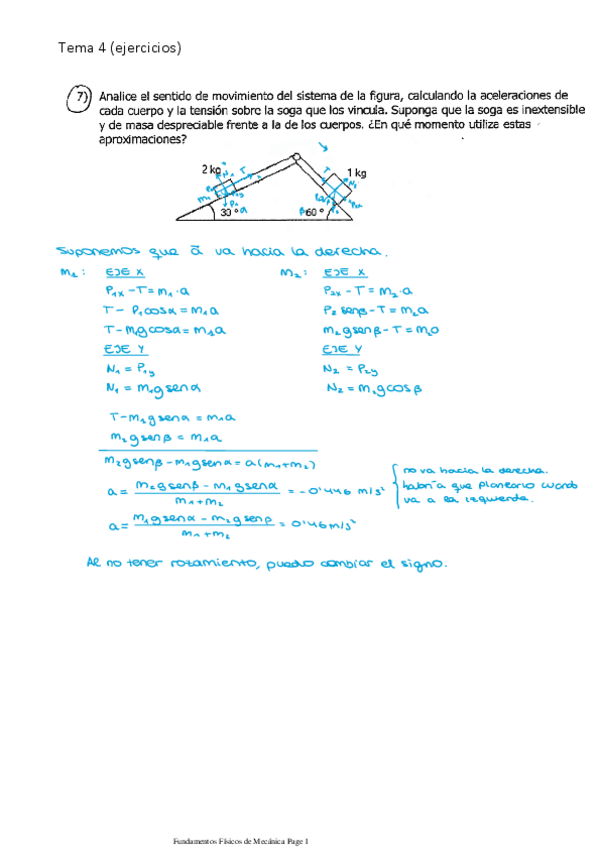 Tema 4 (ejercicios)
7) Analice el sentido de movimiento del sistema de la figura, calculando la aceleraciones de
cada cuerpo y la tensión sobre la soga que los vincula. Suponga que la soga es inextensible
y de masa despreciable frente a la de los cuerpos. ¿En qué momento utiliza estas
aproximaciones?
2 kg 1 kg
30 º α β 60 º
Suponemos que ā va hacia la derecha.
m₁: EJE X m₂: EJE X
P₁ₓ - T = m₁·a P₂ₓ - T = m₂·a
T - P₁cosα = m₁a P₂ senβ - T = m₂a
T - m₁gcosα = m₁a m₂gsenβ - T = m₂a
EJE Y EJE Y
N₁ = P₁y N₂ = P₂y
N₁ = m₁gsenα N₂ = m₂gcosβ
T - m₁gsenα = m₁a
m₂gsenβ = m₁a
m₂gsenβ - m₁gsenα = a(m₁+m₂)
a = m₂gsenβ - m₁gsenα / m₁+m₂ = -0'446 m/s²
no va hacia la derecha.
habría que plantearlo cuando
va a la izquierda.
a = m₁gsenα - m₂gsenβ / m₁+m₂ = 0'46m/s²
Al no tener rozamiento, puedo cambiar el signo.
Fundamentos Físicos de Mecánica Page 1